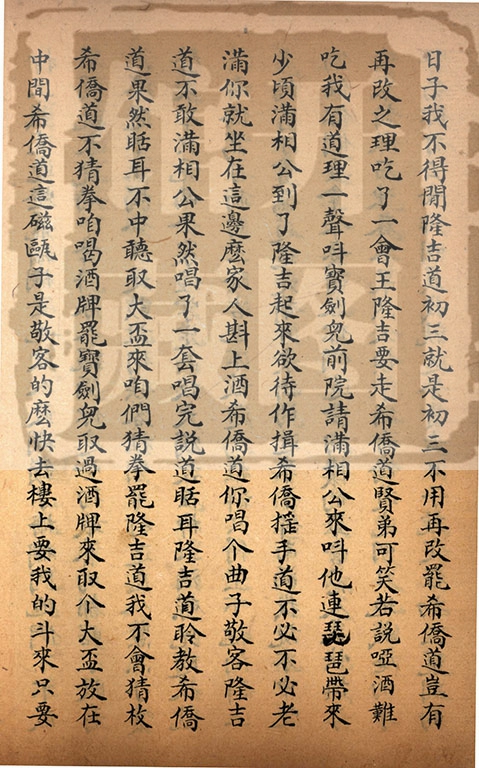 日子我不得閒隆吉道初三就是初三不用再改罷希僑道豈有
再改之理吃了一會王隆吉要走希僑道賢弟可笑若說啞酒難
吃我有道理一聲呌寶劍兒前院請滿相公來呌他連琵琶帶來
少頃滿相公到了隆吉起來欲待作揖希僑搖手道不必不必老
滿你就坐在這邊麽家人斟上酒希僑道你唱个曲子敬客隆吉
道不敢滿相公果然唱了一套唱完說道聒耳隆吉道聆教希僑
道果然聒耳不中聽取大盃來咱們猜拳罷隆吉道我不會猜枚
希僑道不猜拳咱喝酒牌罷寶劍兒取過酒牌來取个大盃放在
中間希僑道這磁甌子是敬客的麽快去樓上要我的斗來只要